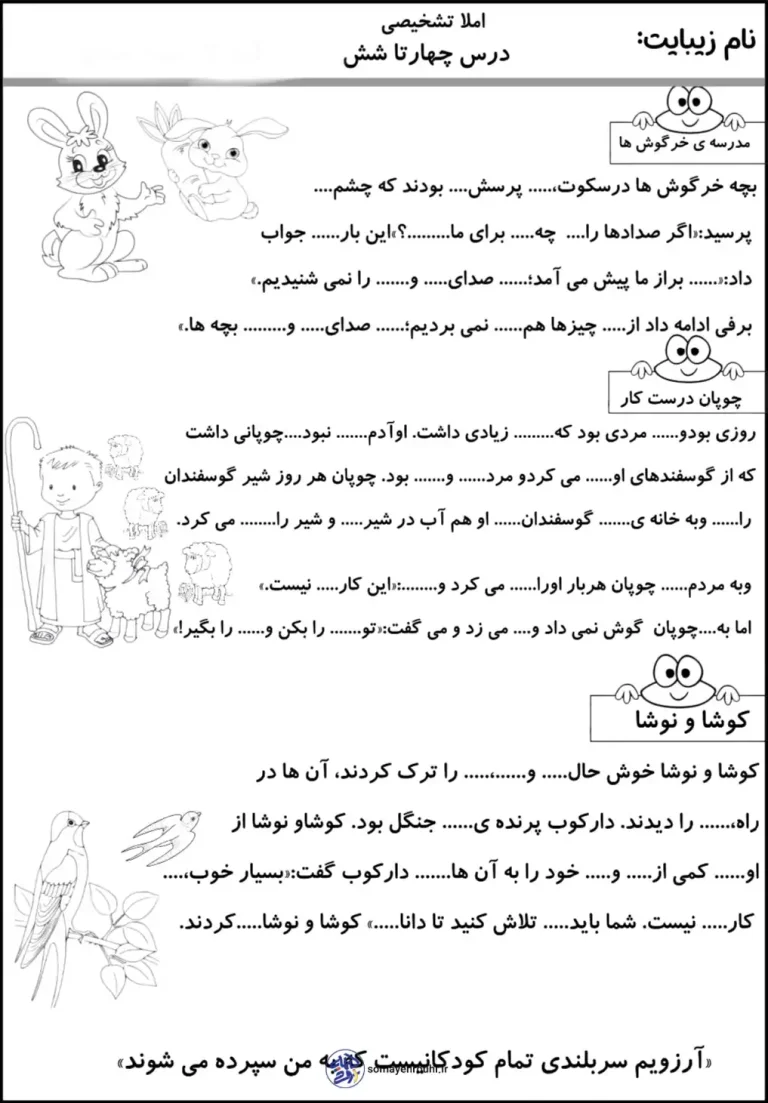 نام زیبایت:
املا تشخیصی
درس چهارتا شش
مدرسه ی خرگوش ها
بچه خرگوش ها درسکوت،..... پرسش.... بودند که چشم....
پرسید:«اگر صدادها را.... چه..... برای ما.........؟»این بار...... جواب
داد:«...... براز ما پیش می آمد؛...... صدای..... و....... را نمی شنیدیم.»
برفی ادامه داد از..... چیزها هم...... نمی بردیم؛...... صدای..... و......... بچه ها.»
چوپان درست کار
روزی بودو...... مردی بود که......... زیادی داشت. اوآدم....... نبود....چوپانی داشت
که از گوسفندهای او...... می کردو مرد...... و....... بود. چوپان هر روز شیر گوسفندان
را...... وبه خانه ی....... گوسفندان...... او هم آب در شیر..... و شیر را........ می کرد.
وبه مردم...... چوپان هربار اورا...... می کرد و........:«این کار..... نیست.»
اما به....چوپان گوش نمی داد و.... می زد و می گفت:«تو....... را بکن و...... را بگیر!»
کوشا و نوشا
کوشا و نوشا خوش حال..... و......،..... را ترک کردند، آن ها در
راه،...... را دیدند. دارکوب پرنده ی...... جنگل بود. کوشاو نوشا از
او...... کمی از..... و..... خود را به آن ها....... دارکوب گفت:«بسیار خوب،....
کار..... نیست. شما باید..... تلاش کنید تا دانا.....» کوشا و نوشا.....کردند.
«آرزویم سربلندی تمام کودکانیست که به من سپرده می شوند»